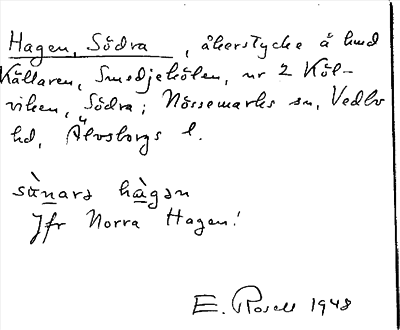 Hagen, Södra, åkerstycke å hmd
Källaren, Smedjehölen, nr 2 Köl-
viken, Södra; Nössemarks sn, Vedbo
hd, Älvsborgs l.
sùnarə hàgən
Jfr Norra Hagen!
E. Rosell 1948